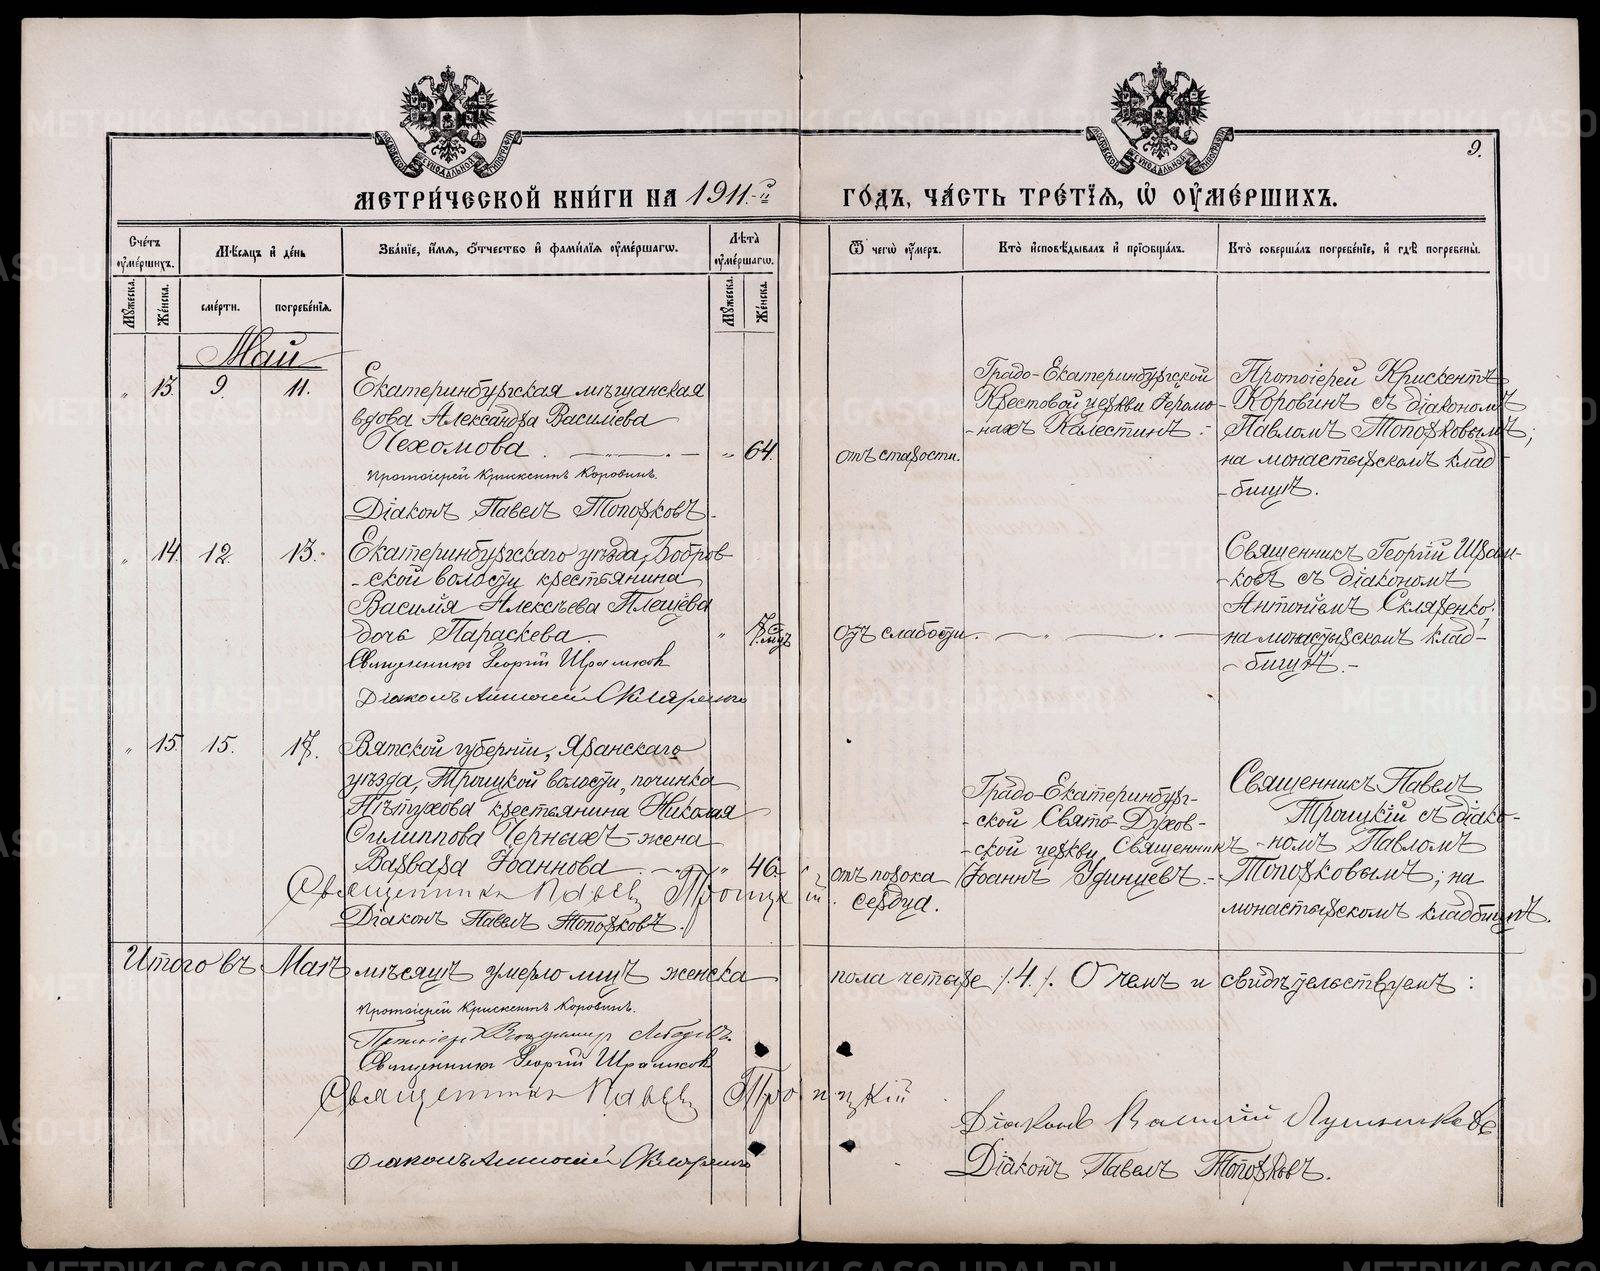 9.
МЕТРИ́ЧЕСКОЙ КНИ́ГИ НА 1911.-й ГО́ДЪ, ЧА́СТЬ ТРЕ́ТІѦ, Ѡ҆ ОУ҆МЕ́РШИХЪ.
Сче́тъ оу҆ме́ршихъ.
Мѣ́сяцъ и҆ де́нь
Зва́ніе, и҆́мя, ѻ҆́тчество и҆ фами́лія оу҆ме́ршагѡ.
Лѣта̀ оу҆ме́ршагѡ.
Ѿ чегѡ̀ оу҆́меръ.
Кто̀ и҆сповѣ́дывалъ и҆ пріѡбща́лъ.
Кто̀ соверша́лъ погребе́ніе, и҆ гдѣ̀ погребены̀.
Му́жеска.
Же́нска.
сме́рти.
погребе́нія.
Му́жеска.
Же́нска.
Май
„ 13. 9. 11.
Екатеринбургская мѣщанская
вдова Александра Васильева
Чехомова.
„ 64.
Протоіерей Крискентъ Коровинъ.
Діаконъ Павелъ Топорковъ.
отъ старости.
Градо-Екатеринбургской
Крестовой церкви Iеромо-
-нахъ Калестинъ.-
Протоіерей Крискентъ
Коровинъ съ діакономъ
Павломъ Топорковымъ;
на монастырскомъ клад-
-бищѣ.
„ 14. 12. 13.
Екатеринбургскаго уѣзда, Бобров-
-ской волости крестьянина
Василія Алексѣева Плещева
дочь Параскева.
„ мцъ
Священникъ Георгій
Діаконъ Антоній Скляренко
отъ слабости.
Священникъ Георгій
-ковъ съ діакономъ
Антоніемъ Скляренко;
на монастырскомъ клад-
-бищѣ.-
„ 15. 15. 17.
Вятской губерніи, Яранскаго
уѣзда, Троицкой волости, починка
Пѣтухова крестьянина Николая
Филиппова Черныхъ-жена
Варвара Iоаннова.
„ 46.
Священникъ Павелъ Троицкій.
Діаконъ Павелъ Топорковъ.
отъ порока
сердца.
Градо-Екатеринбург-
-ской Свято-Духов-
-ской церкви Священникъ
Iоаннъ Удинцевъ.-
Священникъ Павелъ
Троицкій съ діако-
-номъ Павломъ
Топорковымъ; на
монастырскомъ кладбищѣ.
Итого въ Маѣ мѣсяцѣ умерло лицъ женска пола четыре /.4./. О чемъ и свидѣтельствуемъ:
Протоіерей Крискентъ Коровинъ.
Протоіерей Владимиръ Лебедевъ.
Священникъ Георгій
Священникъ Павелъ Троицкій
Діаконъ Василій
Діаконъ Антоній Скляренко
Діаконъ Павелъ Топорковъ.
METRIKI.GASO-URAL.RU